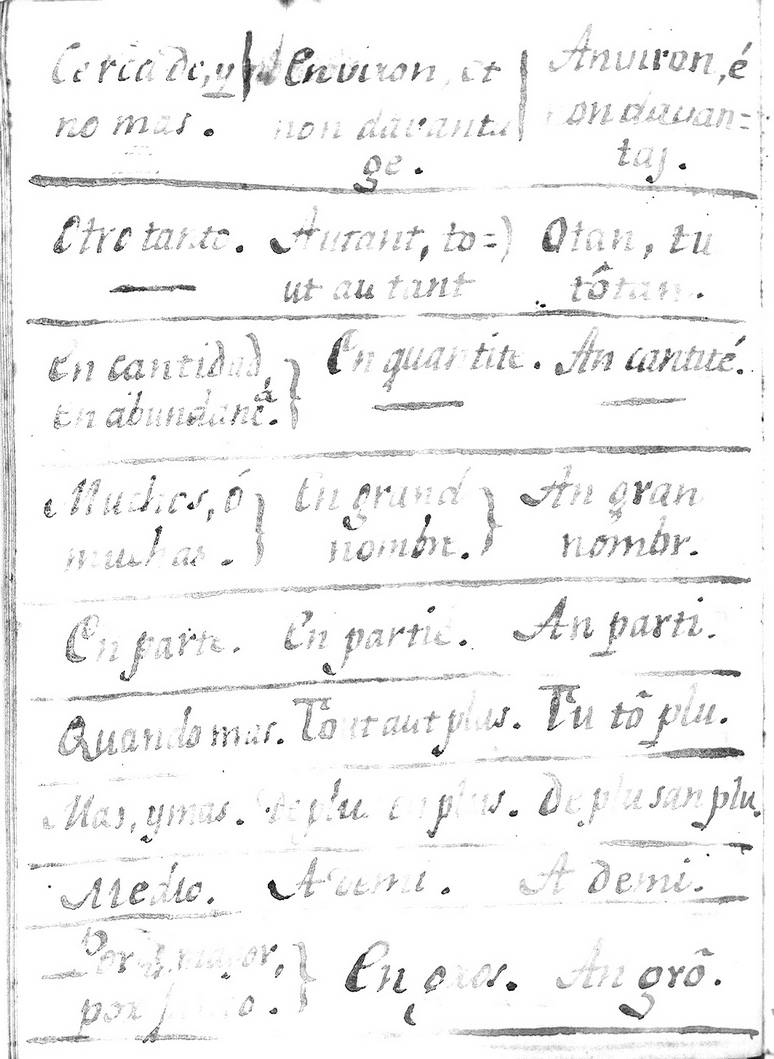 Cerca de, y Environ, et Anviron, é
no mas. non davanta on davan=
ge. taj.
Otro tanto. Autant, to=) Otan, tu
ut au tant tôtan.
En cantidad, En quantite. An cantité.
en abundanc.ª
Muchos, ó En grand An gran
muchas. nombre. nombr.
En parte. En partie. An parti.
Quando mas. Tout aut plus. Tu tô plu.
Mas, y mas. De plu en plus. De plu san plu.
Medio. A demi. A demi.
Por mayor,
por En gros. An grô.